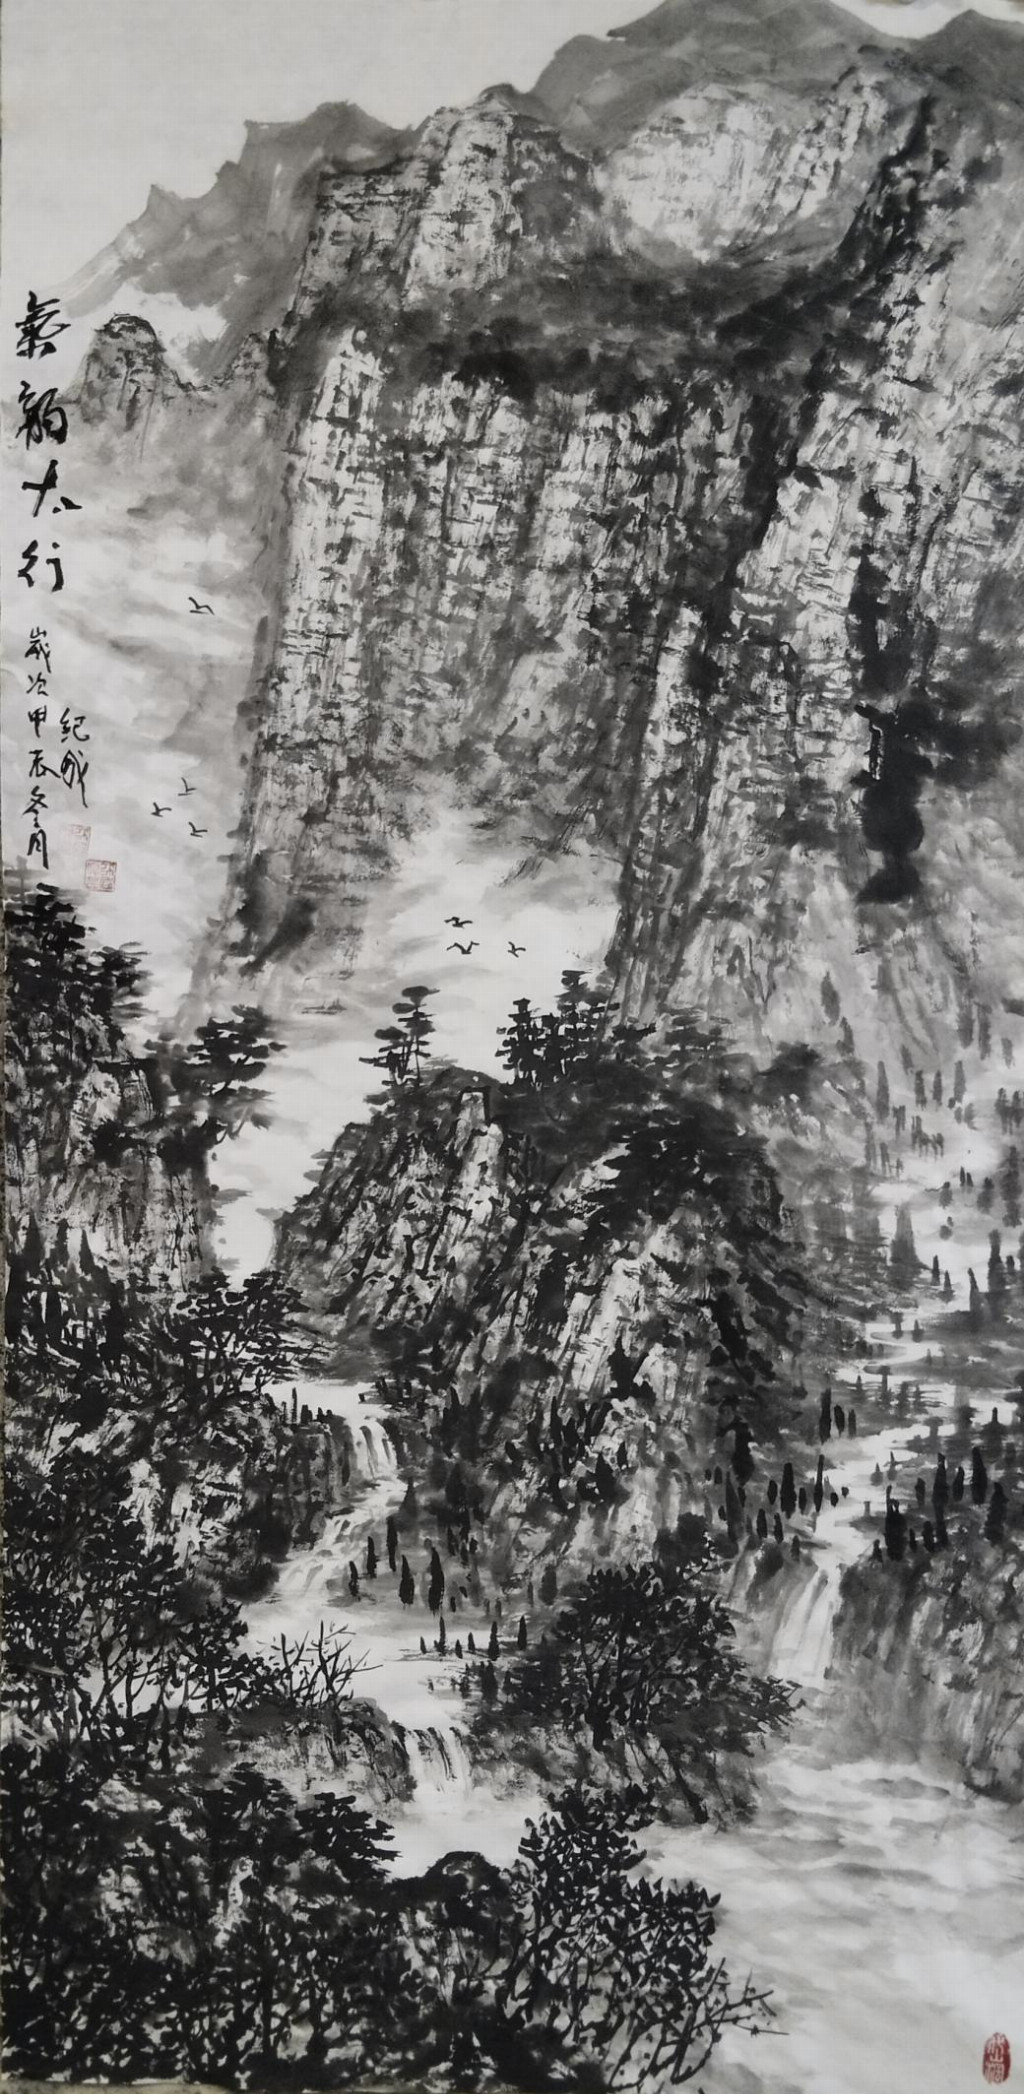 氣韵太行
歲次甲辰冬月
紀成